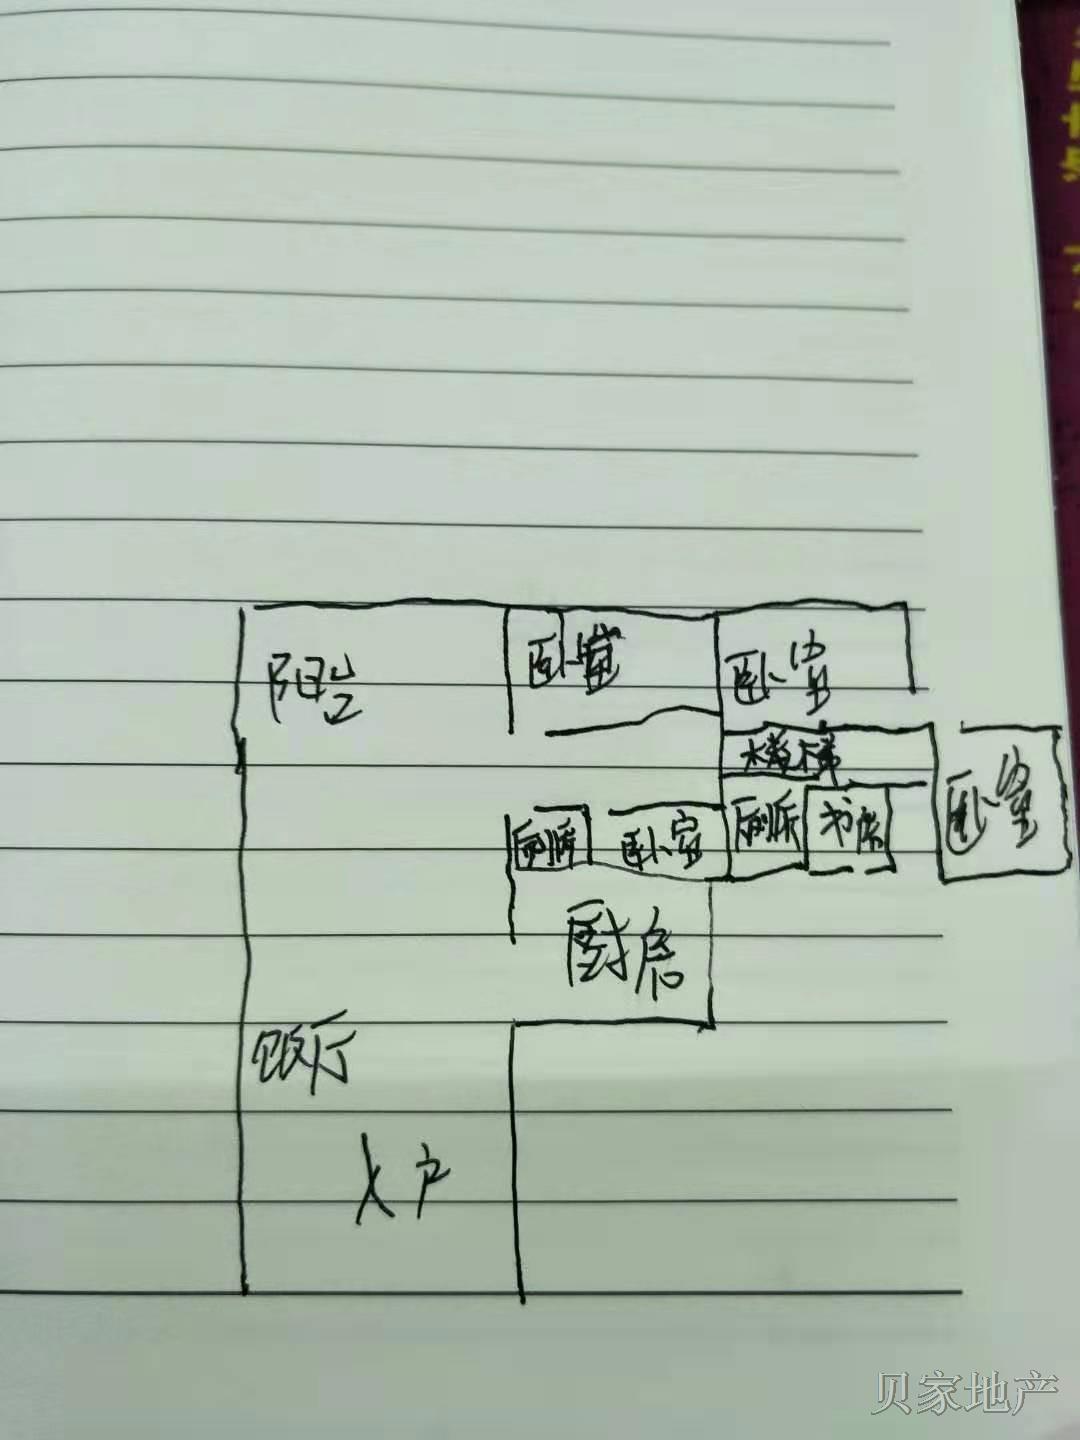 阳台
卧室
卧室
楼梯
卧室
厕所
卧室
厕所
书房
厨房
饭厅
入户
贝家地产